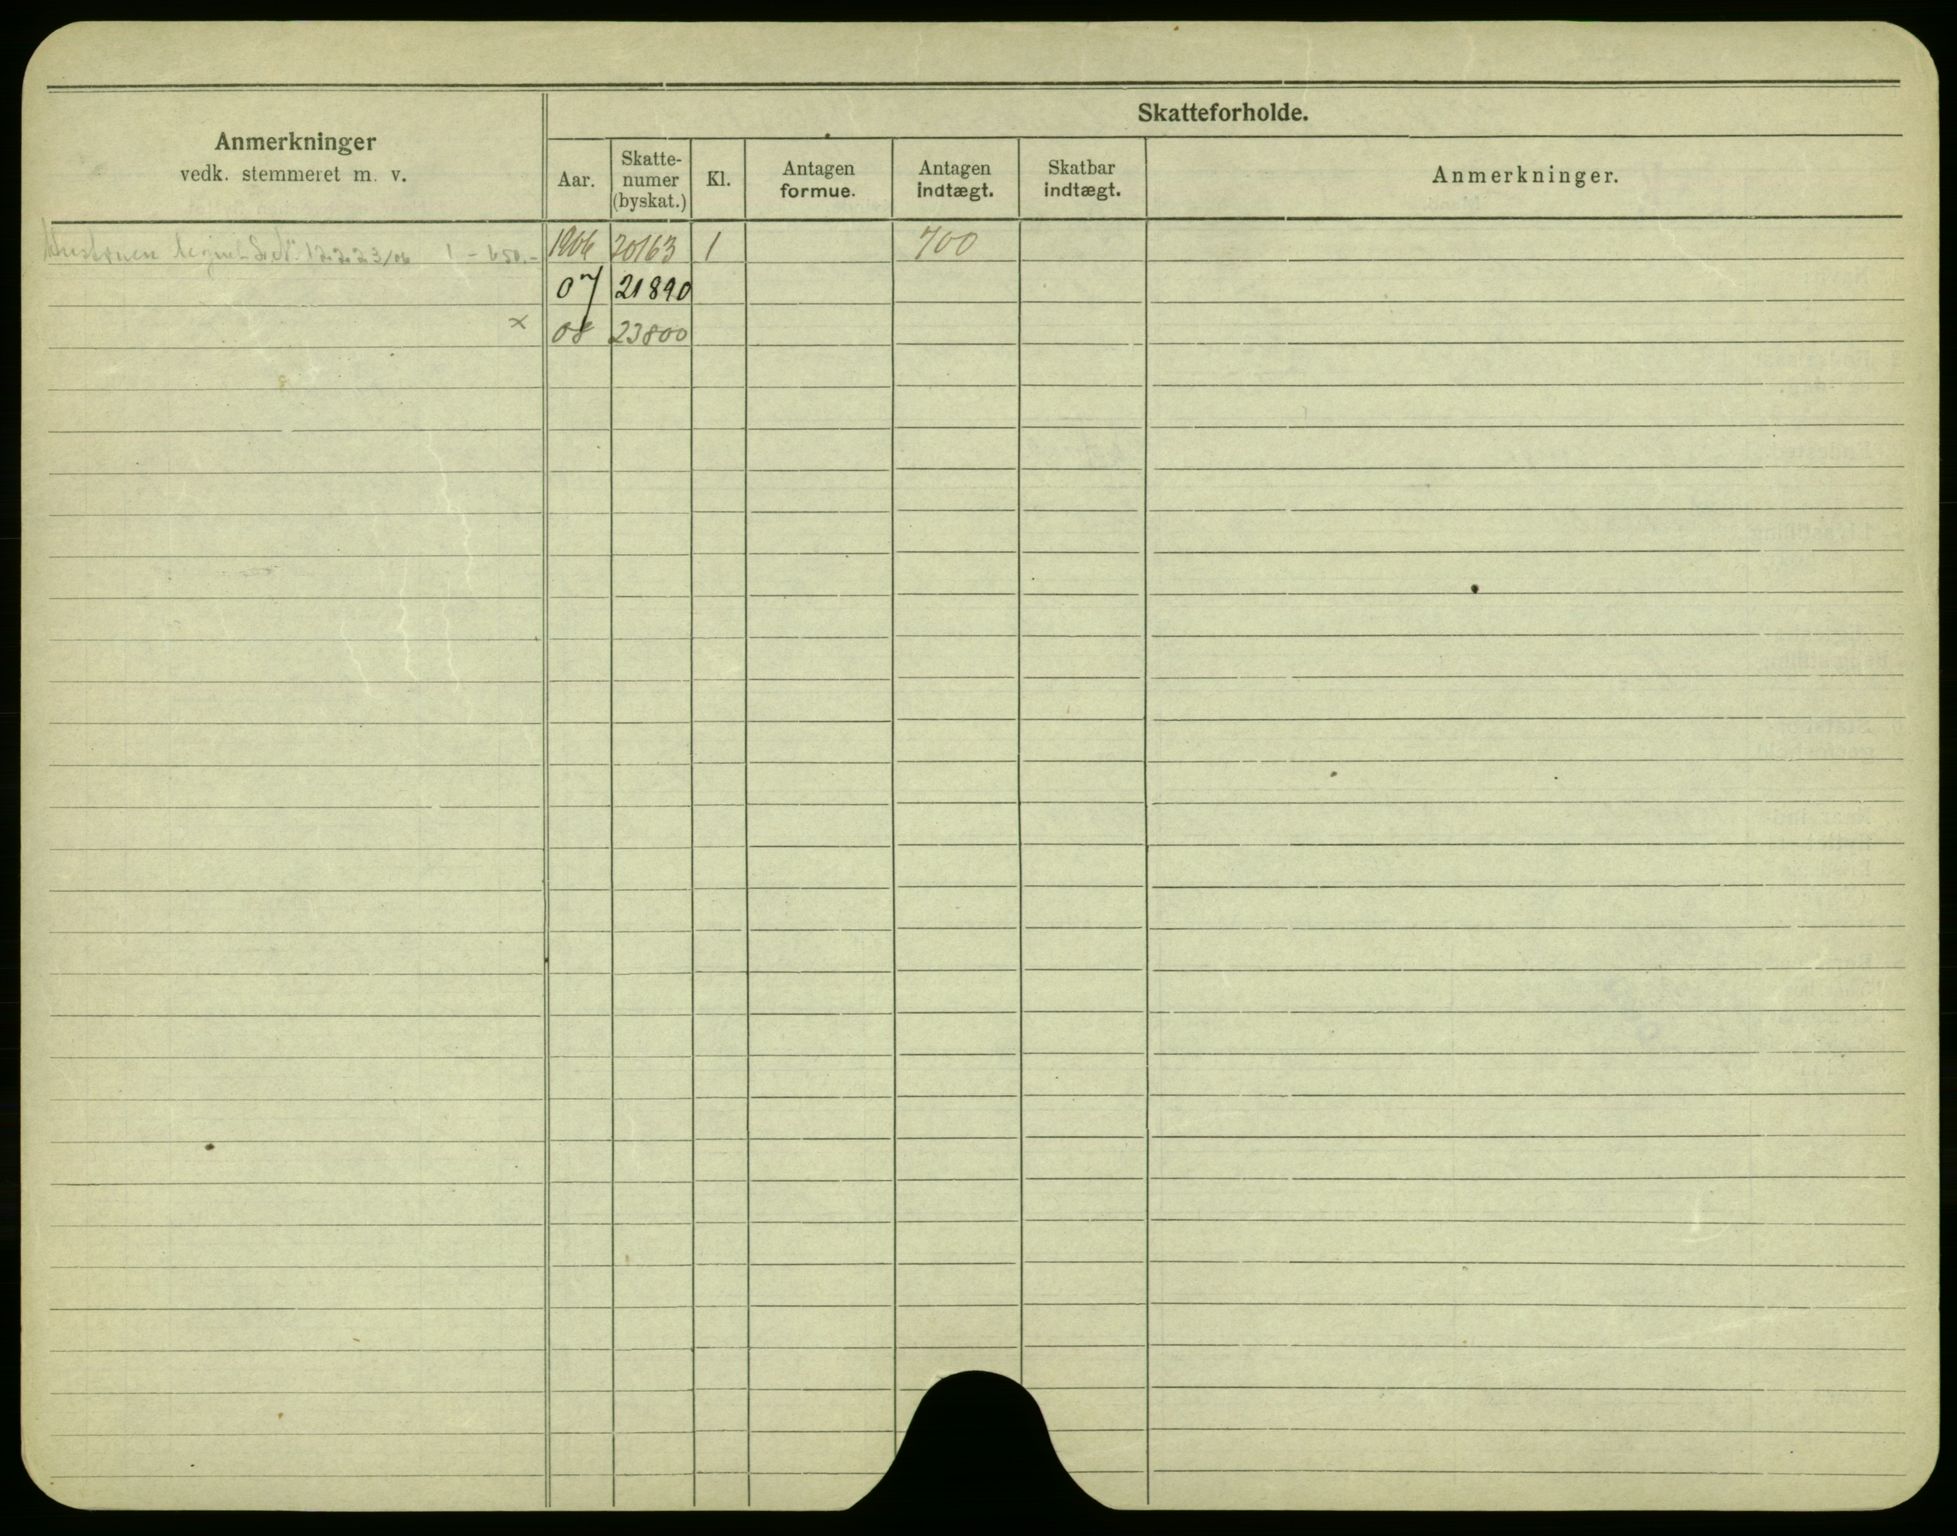 Skatteforholde.
Anmerkninger
vedk. stemmeret m. v.
Aar.
Skatte-
numer
(byskat.)
Kl.
Antagen
formue.
Antagen
indtægt.
Skatbar
indtægt.
Anmerkninger.
Hustruen lignet S. N. 12223/06 1 - 650.-
1906 20163 1 700
07 21890
× 08 23800